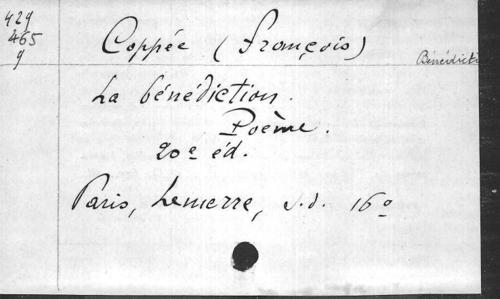 429
465
9
Coppée (François)
Bénédicti
La bénédiction.
Poème.
20e éd.
Paris, Lemerre, s.d. 16o